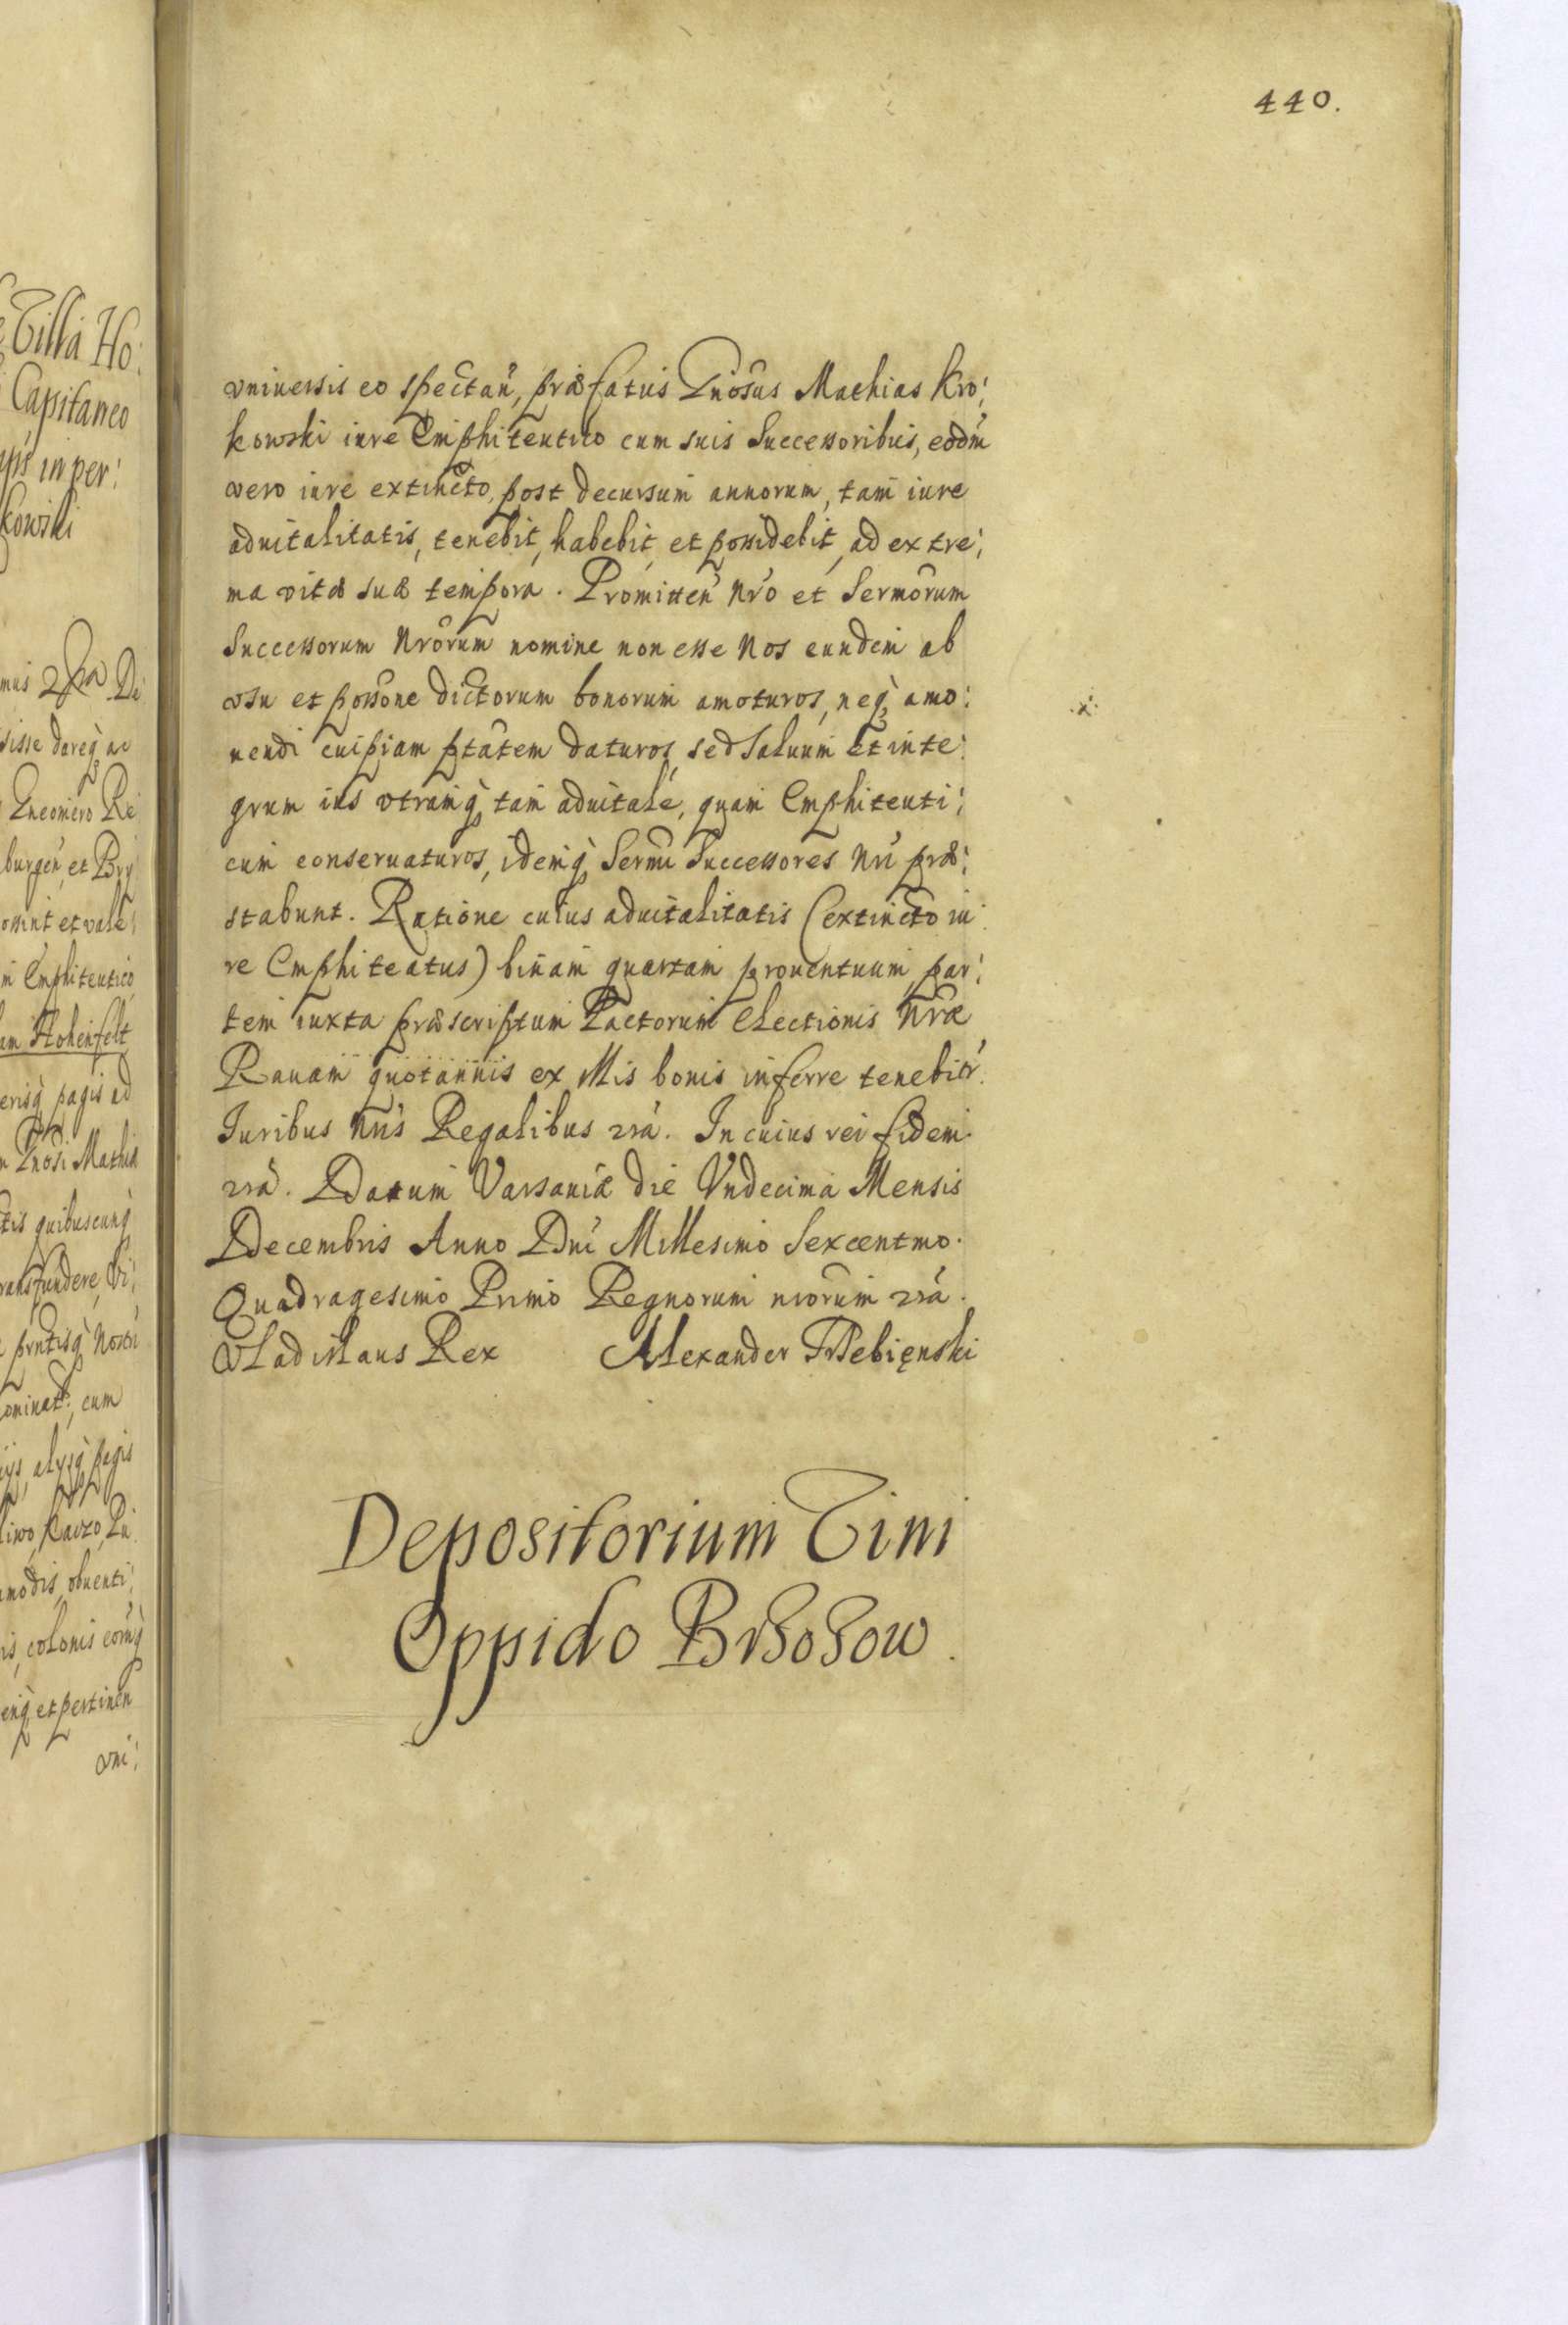 440.
vniuersis eo spectan̄, præfatus Gnosus Mathias Kro:
kowski iure Emphiteutico cum suis Successoribus, eodm̄
vero iure extincto, post decursum annorum, tam iure
aduitalitatis, tenebit, habebit, et possidebit, ad extre:
ma vitæ suæ tempora. Promitten̄ Nro et Sermorum
Successorum Nrorum nomine non esse Nos eundem ab
vsu et possone dictorum bonorum amoturos, neq́ amo:
uendi cuipiam ptatem daturos, sed saluum et inte:
grum ius vtramq́ tam aduitale, quam Emphiteuti:
cum conseruaturos, idemq́ Sermi Successores Nri præ:
stabunt. Ratione cuius aduitalitatis (extincto iu:
re Emphiteatus) binam quartam prouentuum par:
tem iuxta præscriptum Pactorum Electionis Nræ
Rauam quotannis ex illis bonis inferre tenebitr.
Iuribus Nris Regalibus
In cuius rei fidem.
Datum Varsauiæ die Vndecima Mensis
Decembris Anno Dni Millesimo Sexcentmo.
Quadragesimo Primo Regnorum nrorum
Vladislaus Rex Alexander Trzebięnski
Depositorium Vini
Oppido Brzozow.
Villa Ho:
Capitaneo
in per:
kowski
De
sisse dareq́ ac
Gneomero Re
burgen̄, et Pry
ossint et vale:
m Emphiteutico
am Hohenfelt
erisq́ pagis ad
Gnosi Mathia
tis quibuscunq́
ransfundere, vi:
prntisq́ Nostri
ominat:, cum
ijs, alysq́ pagis
modis, obuenti:
is, colonis eorumq́
enq́ et pertinen
vni: